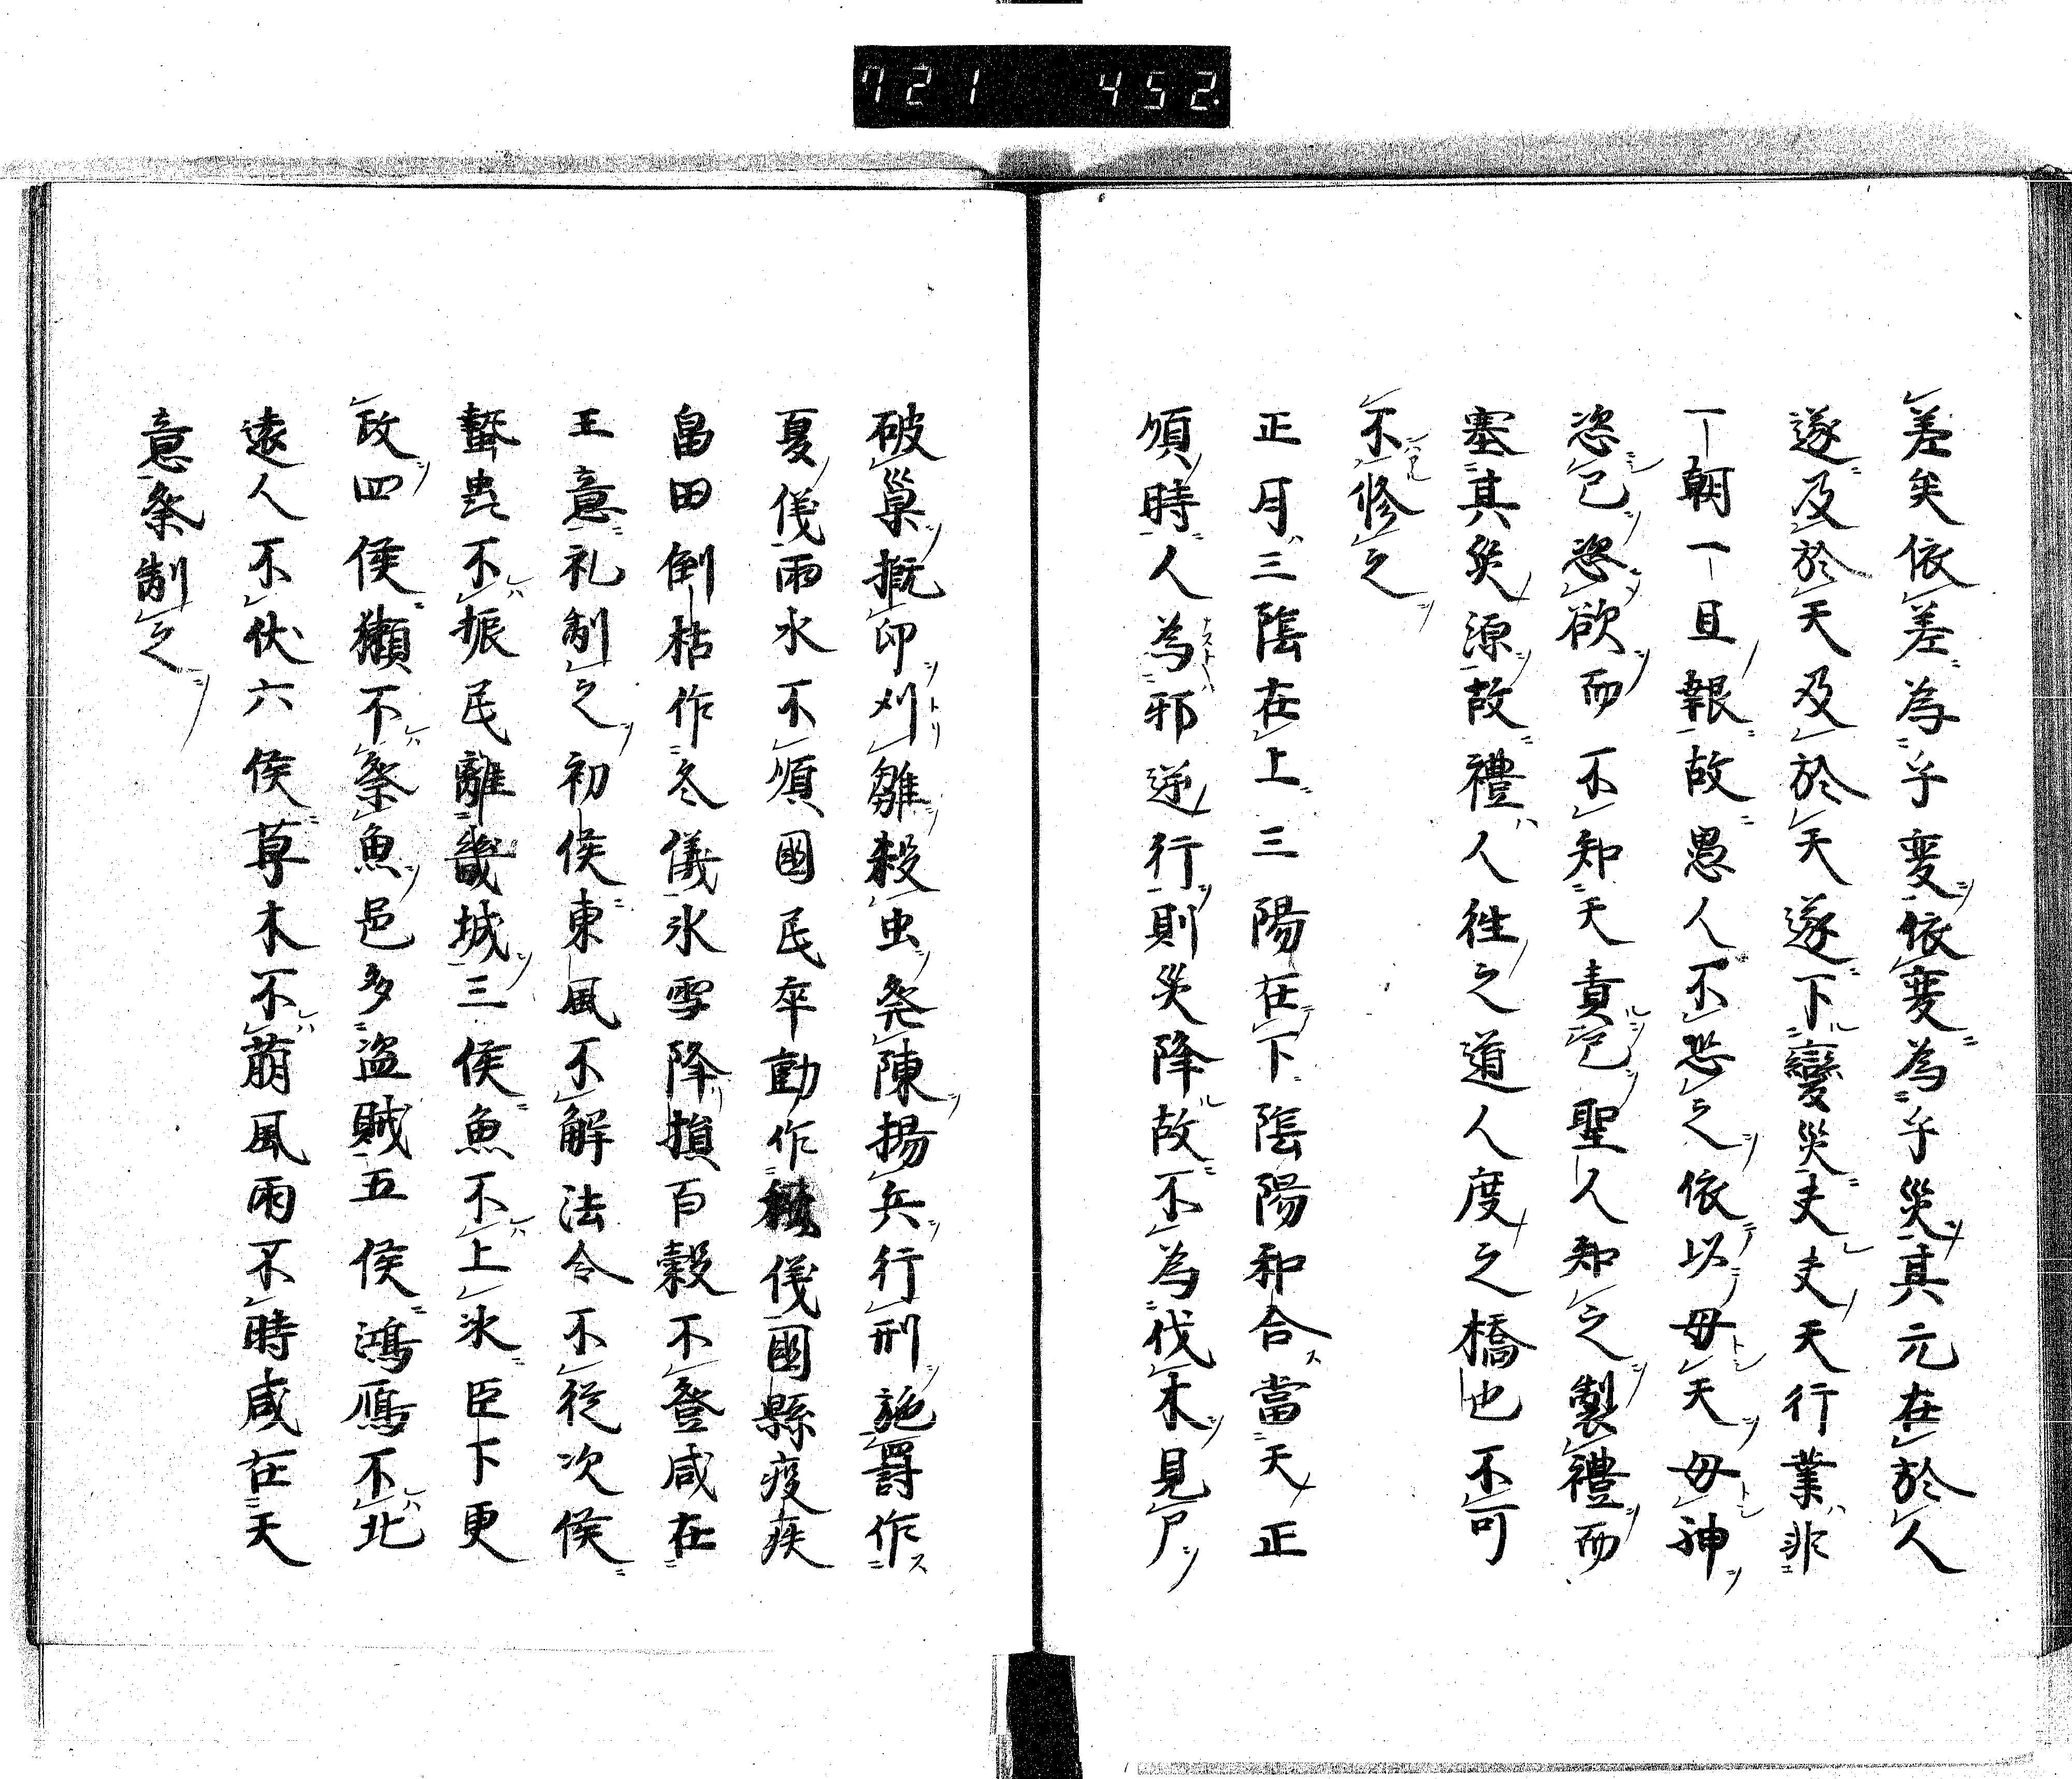 721 452.
差矣依差為乎変依変為乎災其元在於人
遂及於天及於天遂下變災夫夫天行業非
一朝一旦報故愚人不恐之依以毋天毋神
恣己恣欲而不知天責己聖人知之製禮而
塞其災源故禮人徃之道人度之橋也不可
不修之
正月三陰在上三陽在下陰陽和合當天正
順時人為邪逆行則災降故不為伐木見尸
破巣概卯刈雛殺虫発陳揚兵行刑施罸作
夏儀雨水不順國民卒動作儀國縣疫疾
畠田倒枯作冬儀氷雪降損百穀不登咸在
王意礼制之初侯東風不解法令不従次侯
蟄虫不振民離畿城三侯魚不上氷臣下更
政四侯獺不祭魚邑多盜賊五侯鴻鴈不北
遠人不伏六侯草木不萠風雨不時咸在天
意祭制之